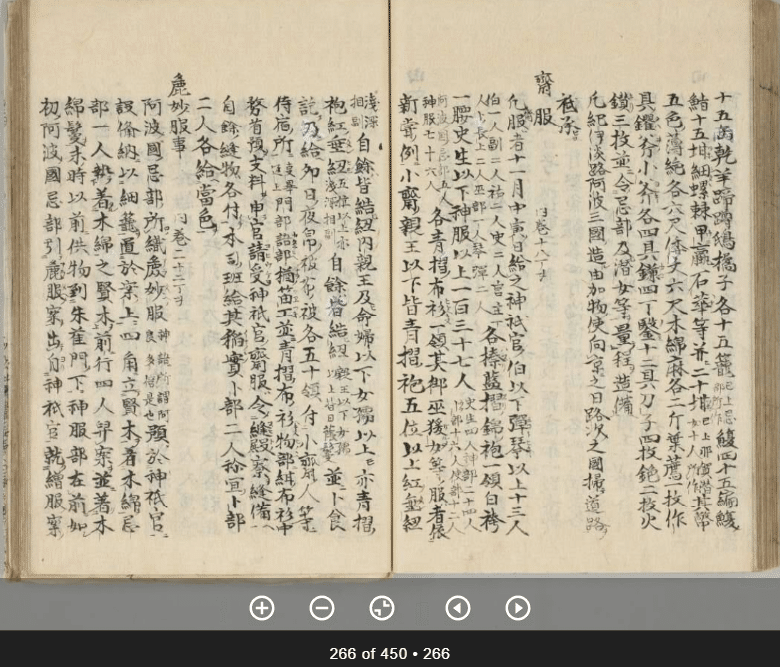 十五缶乾羊蹄蹲鴟橘子各十五籠已上忌鰒四十五編鰒
鮨十五坩細螺棘甲蠃石華等并二十坩已上那賀潜女十人所作其幣
五色薄絁各六尺倭文六尺木綿麻各二斤葉薦一枚作
具钁斧小斧各四具鎌四丁鑿十二具刀子四枚鉇二枚火
鑽三枚並令忌部及潜女等量程造備
凡紀伊淡路阿波三國造由加物使向京之日路次之國掃道路
祗承
齋服 内巻十八丁オ
凡服者十一月中寅日給之神祇官伯以下彈琴以上十三人
伯一人副二人祐二人史二人宮主一人卜長上二人巫部一人琴彈二人各榛藍摺錦袍一領白袴
一腰史生以下神服以上一百三十七人史生四人神部二十四人卜部十六人使部十二人
阿波國忌部五人神服七十六人各青摺布衫一領其御巫猨女等服者依
新嘗例小齋親王以下皆青摺袍五位以上紅垂紐
淺深相副自餘皆結紐内親王及命婦以下女孺以上亦青摺
袍紅垂紐五位以上亦淺深相副自餘皆結紐親王以下女孺以上皆日蔭鬘並卜食
訖乃給卯日夜帛被各五十領付小齋人等
侍宿所門部語部楢笛工並青摺布衫物部紺布衫中
務省預支料申官請受神祇官齋服令縫殿寮縫備
自餘縫物各付本司班給其稲實卜部二人称宜卜部
二人各給當色
麁妙服事 内巻二十三丁オ
阿波國忌部所織麁妙服神語所謂阿良多倍是也預於神祇官
設備納以細籠置於案上四角立賢木著木綿忌
部一人執著木綿之賢木前行四人舁案並著木
綿鬘未時以前供物到朱雀門下神服部在前如
初阿波國忌部引麁服案出自神祇官就繒服案
266 of 450 • 266